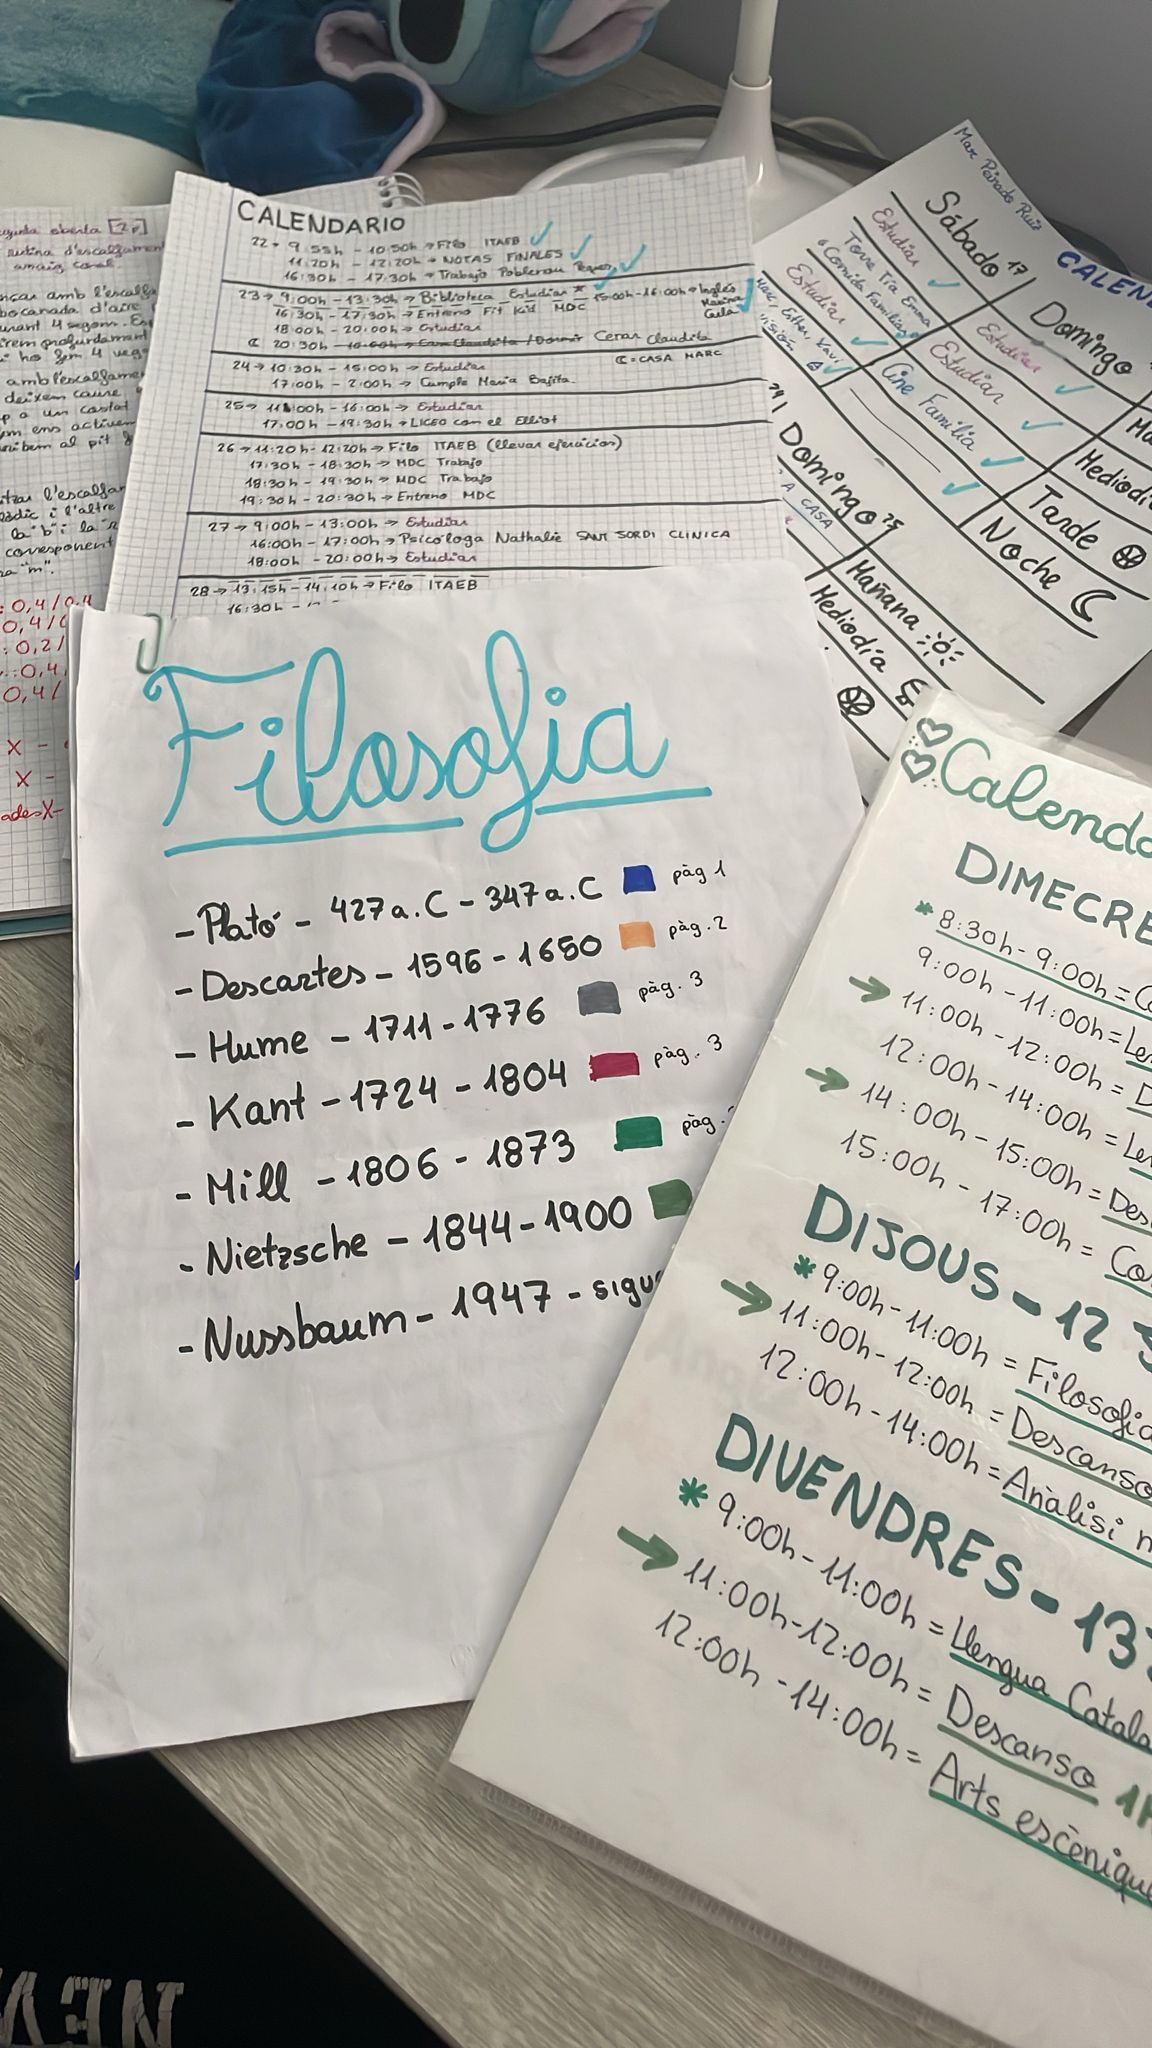 CALENDARIO
22 → 9:55h - 10:50h → Filo ITAEB
11:20h - 12:20h → NOTAS FINALES
16:30h - 17:30h → Trabajo Poblenou Peques
23 → 9:00h - 13:30h → Biblioteca Estudiar * 15:00h - 16:00h → Inglés
Marina
Carla
16:30h - 17:30h → Entreno Fit Kid MDC
18:00h - 20:00h → Estudiar
☾ 20:30h - Cenar Claudita
☾ = CASA MARC
24 → 10:30h - 15:00h → Estudiar
17:00h - 2:00h → Cumple Maria Bajita
25 → 11:00h - 16:00h → Estudiar
17:00h - 19:30h → LICEO con el Elliot
26 → 11:20h - 12:20h → Filo ITAEB (llevar ejercicios)
17:30h - 18:30h → MDC Trabajo
18:30h - 19:30h → MDC Trabajo
19:30h - 20:30h → Entreno MDC
27 → 9:00h - 13:00h → Estudiar
16:00h - 17:00h → Psicóloga Nathalie SANT JORDI CLINICA
18:00h - 20:00h → Estudiar
28 → 13:15h - 14:10h → Filo ITAEB
16:30h -
Mar Peinado Ruiz
CALEN
Sábado 17
Domingo
Estudiar
Torre Tía Emma
"Comida Familiar"
Estudiar
Estudiar
Estudiar
Cine Familia
Mediodí
Tarde
Noche
Domingo 25
A CASA
Mañana
Mediodía
amb l'escalfa
bocanada d'aire
4 segon.
profundament
ho fem 4 veg
amb l'escalfame
deixem caure
a un costat
ens activem
al pit
l'escalfa
i l'altre
la "b" i la
corresponent
"m".
0,4/0,4
0,4/
0,2/
0,4
0,4/
X -
X -
Filosofia
- Plató - 427a.C - 347a.C pàg 1
- Descartes - 1596 - 1650 pàg. 2
- Hume - 1711 - 1776 pàg. 3
- Kant - 1724 - 1804 pàg. 3
- Mill - 1806 - 1873 pàg.
- Nietzsche - 1844 - 1900
- Nussbaum - 1947 - sigu
Calenda
DIMECRE
* 8:30h - 9:00h = Co
9:00h - 11:00h = Len
→ 11:00h - 12:00h = D
12:00h - 14:00h = Len
→ 14:00h - 15:00h = Des
15:00h - 17:00h = Co
DIJOUS - 12
* 9:00h - 11:00h = Filosofia
→ 11:00h - 12:00h = Descanso
12:00h - 14:00h = Anàlisi m
DIVENDRES - 13
* 9:00h - 11:00h = Llengua Catala
→ 11:00h - 12:00h = Descanso 1H
12:00h - 14:00h = Arts escèniqu
NEW